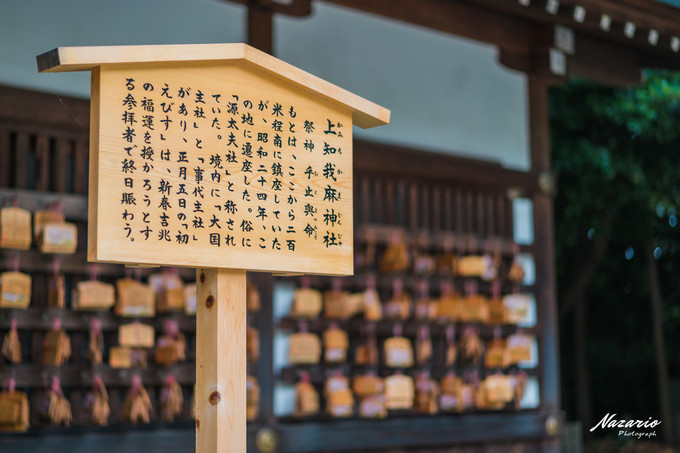 上知我麻神社
かみちかまじんじゃ
祭神 乎止與命
もとは、ここから二百
米程南に鎮座していた
が、昭和二十四年、こ
の地に遷座した。俗に
「源太夫社」と称され
ていた。境内に「大国
主社」と「事代主社」
があり、正月五日の「初
えびす」は、新春吉兆
の福運を授かろうとす
る参拝者で終日賑わう。
Nazario
Photograph